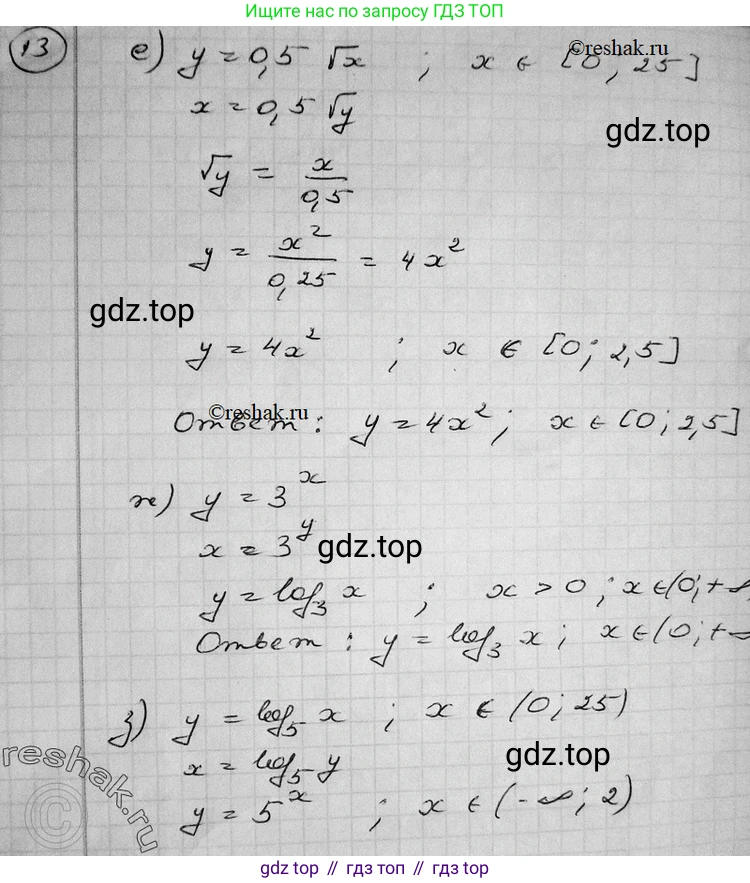 Ищите нас по запросу ГДЗ ТОП
13 е) y = 0,5 √x ; x ∈ [0, 25]
©reshak.ru
x = 0,5 √y
gdz.top
√y = x/0,5
y = x²/0,25 = 4x²
gdz.top
y = 4x² ; x ∈ [0; 2,5]
©reshak.ru
Ответ: y = 4x²; x ∈ [0; 2,5]
ж) y = 3^x
x = 3^y
gdz.top
y = log₃ x ; x > 0 ; x ∈ (0; +∞
Ответ: y = log₃ x; x ∈ (0; +∞
з) y = log₅ x ; x ∈ (0; 25)
x = log₅ y
gdz.top
y = 5^x ; x ∈ (-∞; 2)
reshak.ru
©
gdz top // гдз топ // gdz.top